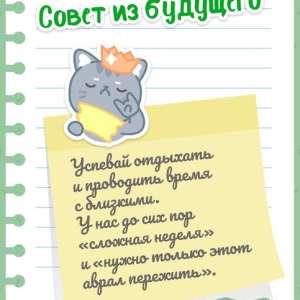 Совет из будущего
Успевай отдыхать
и проводить время
с близкими.
У нас до сих пор
«сложная неделя»
и «нужно только этот
аврал пережить».